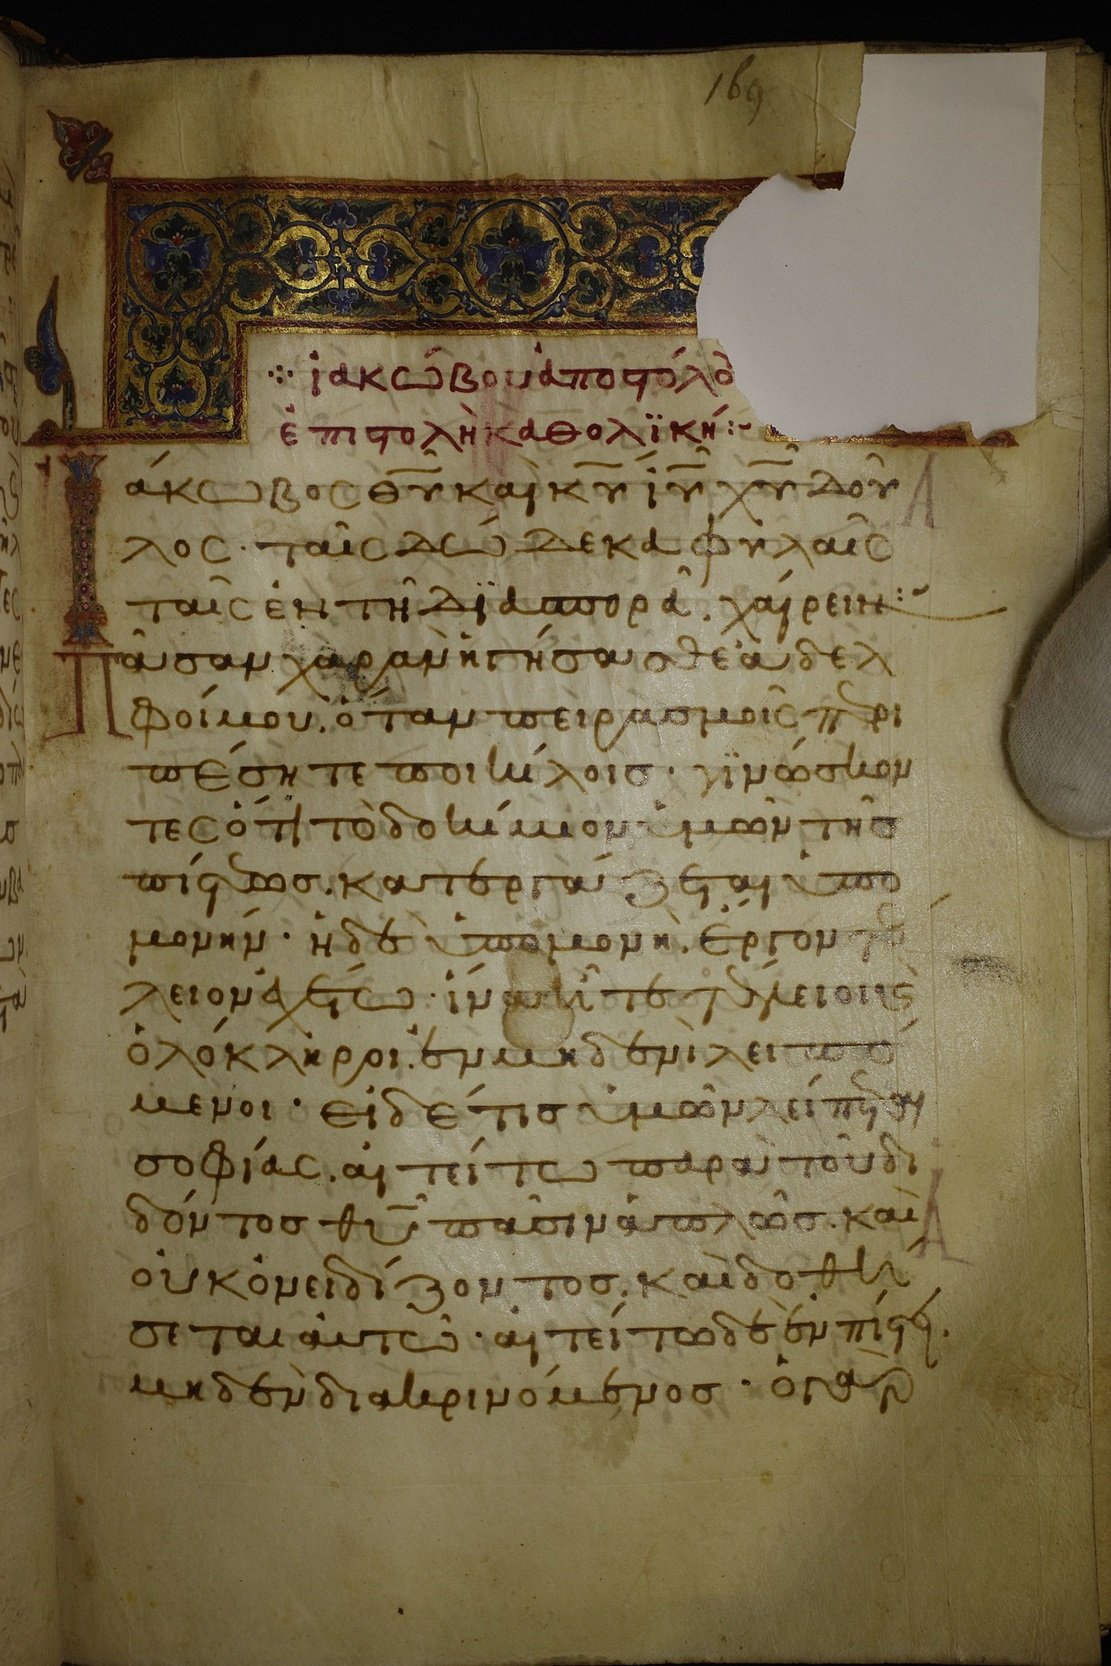 169
ἰακώβου ἀποστόλο
ἐπιστολὴ καθολϊκή:-
Ἰάκωβος θῦ καὶ κῦ ἰῦ χῦ δοῦ
λος· ταῖς δώδεκα φυλαῖς
ταῖς ἐν τῆ δϊασπορᾶ. χαίρειν:-
Πᾶσαν χαρὰν ἡγήσασθε ἀδελ
φοί μου. ὅταν πειρασμοῖς περι
πέσητε ποικίλοις· γϊνώσκον
τες ὅτι τὸ δοκίμιον ὑμῶν τῆς
πίστεως. κατεργάζεται ὑπο
μονήν· ἡ δὲ ὑπομονὴ. ἔργον τέ
λειον ἐχέτω· ἵνα ἦτε τέλειοι καὶ
ὁλόκληροι. ἐν μηδενὶ λειπό
μενοι· εἰ δέ τις ὑμῶν λείπεται
σοφίας. αἰτείτω παρὰ τοῦ δι
δόντος θῦ πᾶσιν ἁπλῶς. καὶ
οὐκ ὀνειδίζοντος. καὶ δοθή
σεται αὐτῶ· αἰτείτω δὲ ἐν πίστει.
μηδὲν διακρινόμενος· ὁ γὰρ